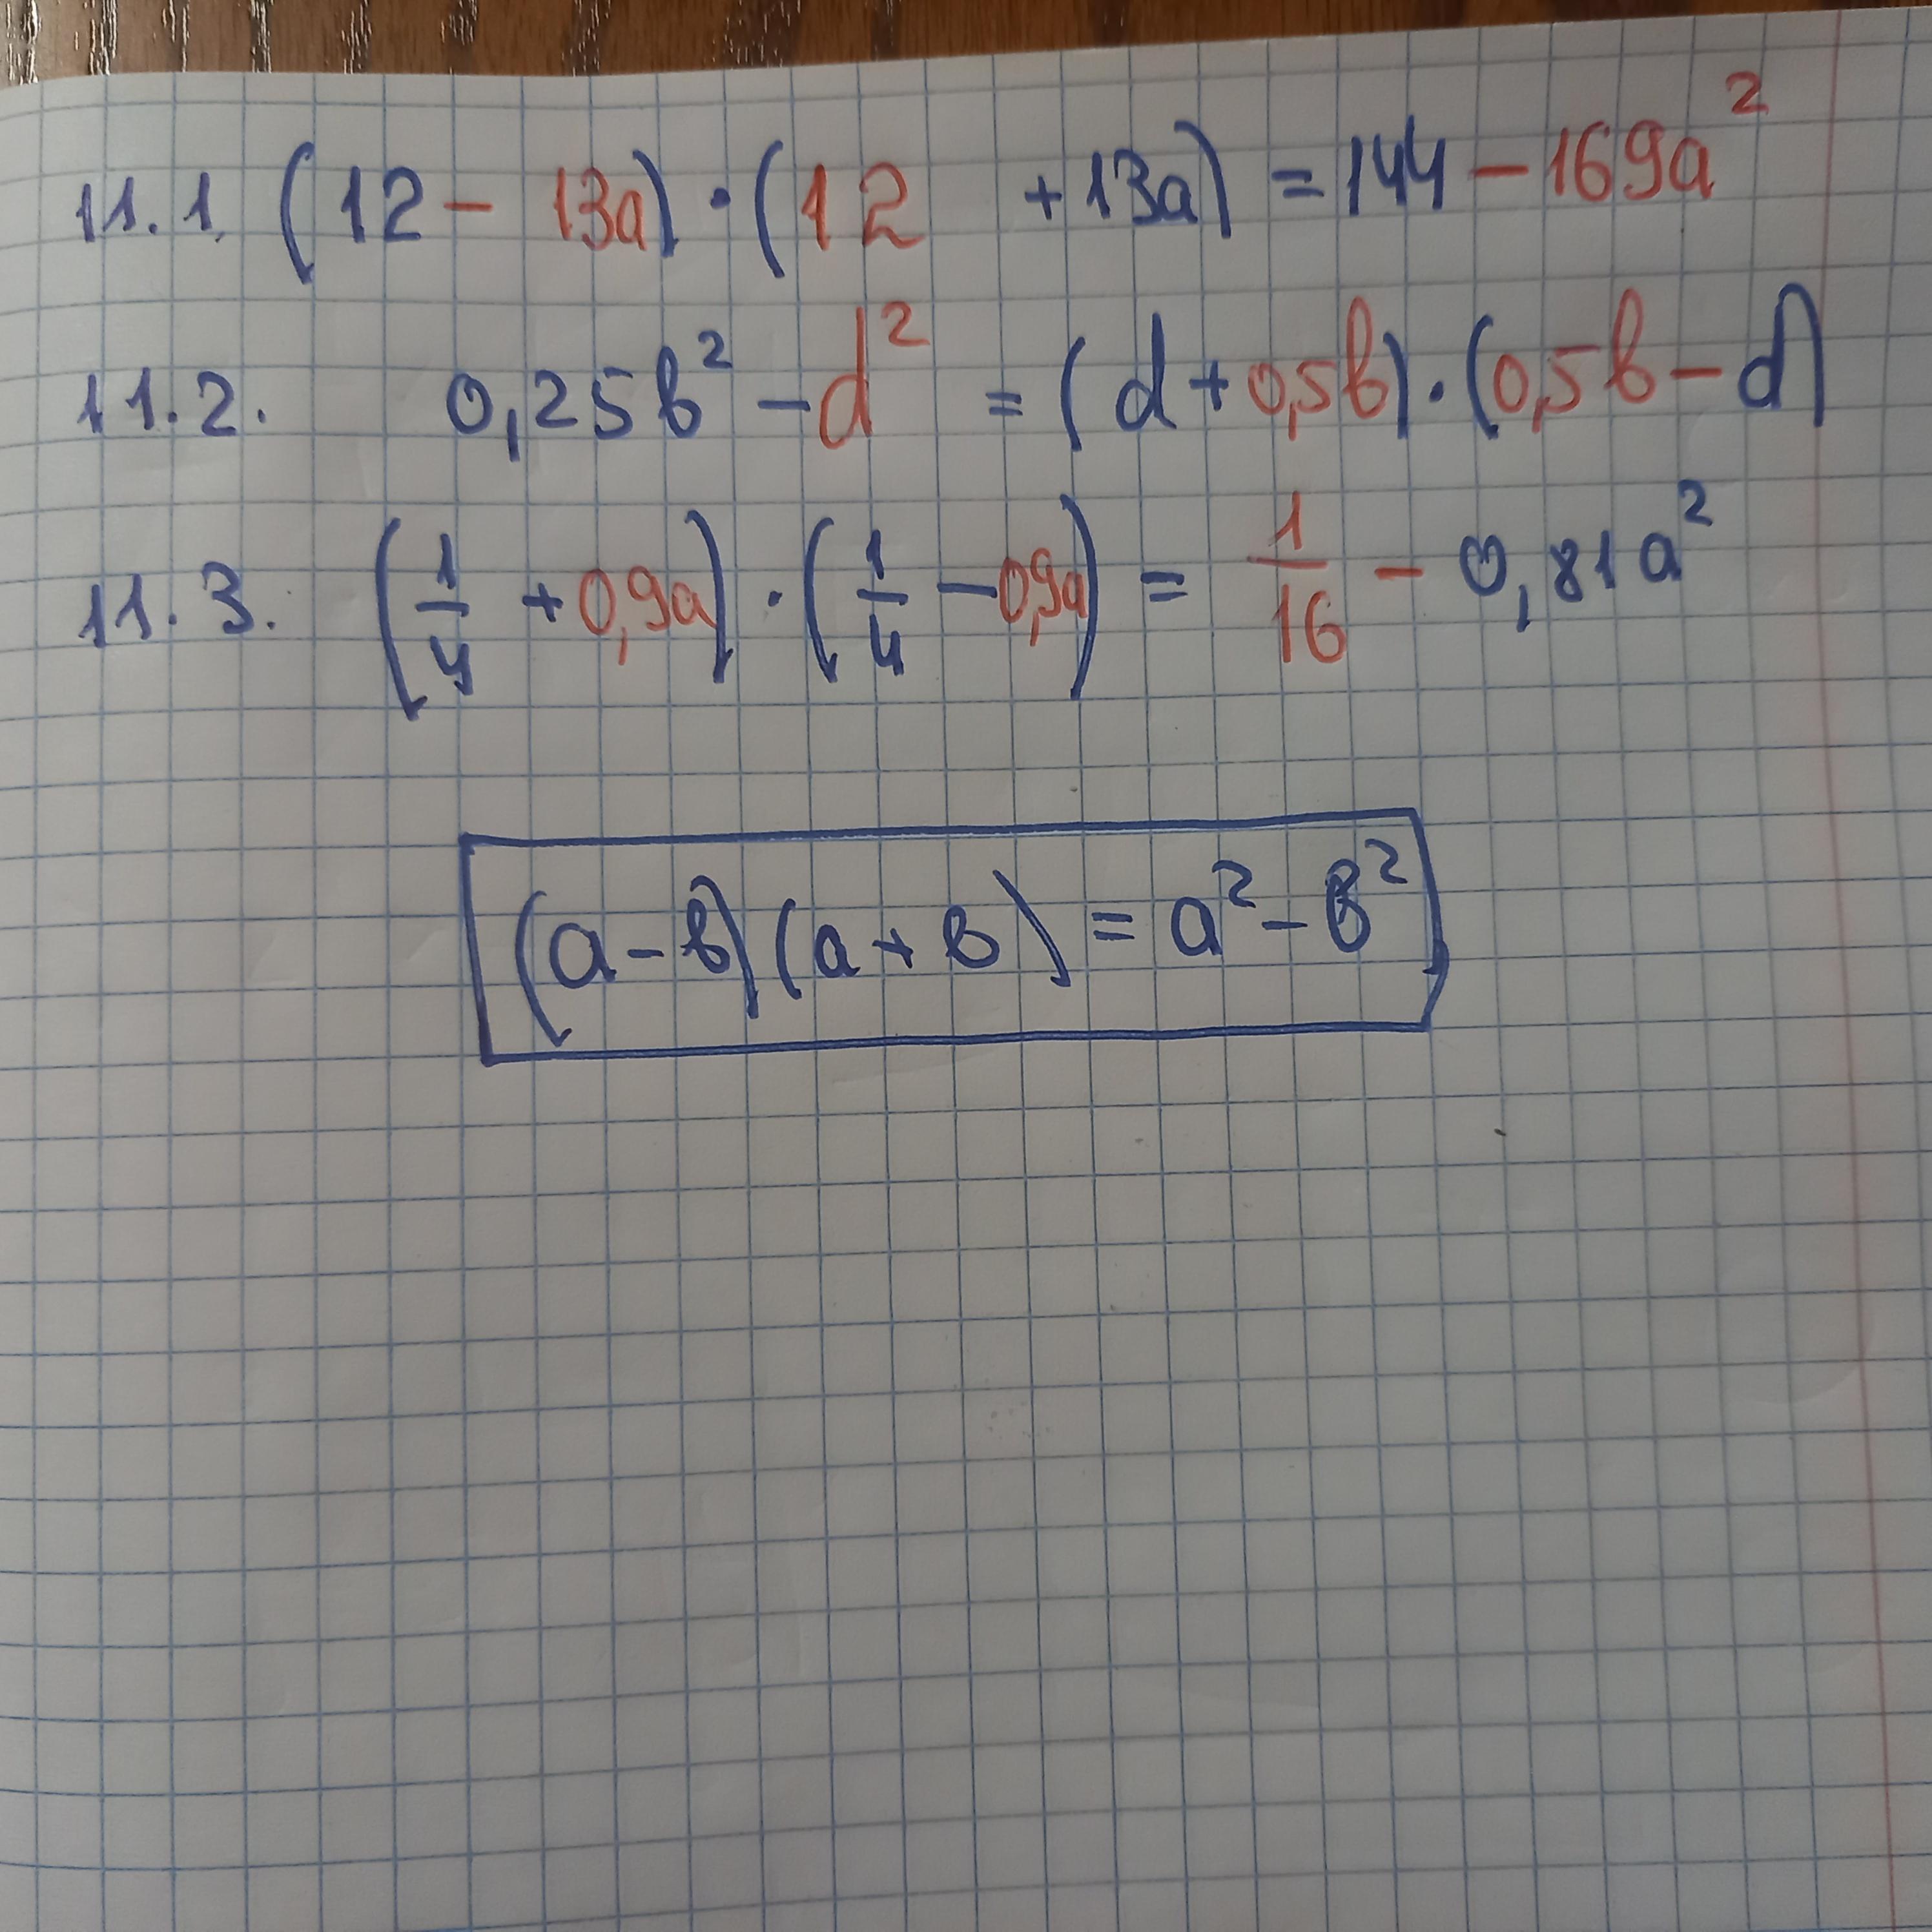 11.1. (12 - 13a) · (12 + 13a) = 144 - 169a²
11.2. 0,25b² - d² = (d + 0,5b) · (0,5b - d)
11.3. (1/4 + 0,9a) · (1/4 - 0,9a) = 1/16 - 0,81a²
(a - b)(a + b) = a² - b²